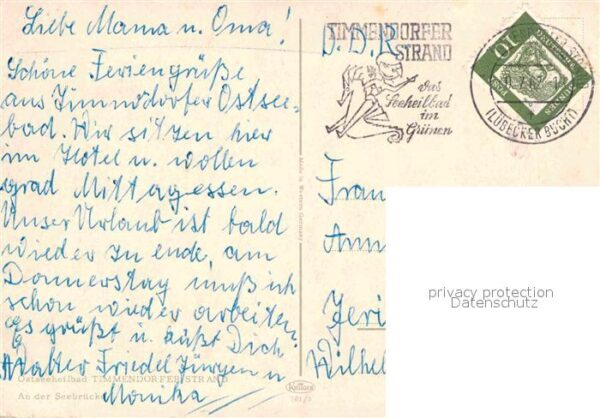 Liebe Mama u. Oma!
Schöne Feriengrüße
aus Timmdorfer Ostsee-
bad. Wir sitzen hier
im Hotel u. wollen
grad Mittagessen.
Unser Urlaub ist bald
wieder zu ende, am
Donnerstag muß ich
schon wieder arbeiten.
Es grüßt u. küßt Dich
Walter Friedel Jürgen u
Monika
Ostseeheilbad TIMMENDORFER STRAND
An der Seebrücke
Made in Western Germany
Krüger
D.D.R.
TIMMENDORFER
STRAND
das
Seeheilbad
im
Grünen
10
(LÜBECKER BUCHT)
Frau
Ann
Wilhel
privacy protection
Datenschutz